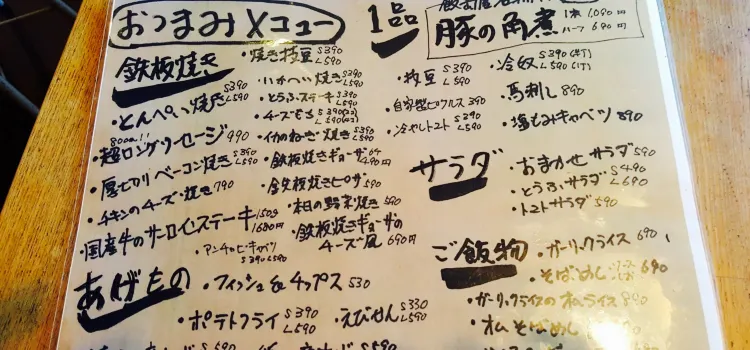 おつまみメニュー
鉄板焼き
・とんぺい焼き S390 L590
80cm!!
・超ロングソーセージ 990
・厚切りベーコン焼き S390 L590
・チキンのチーズ焼き 790
・国産牛のサーロインステーキ 150g 1680円
・アンチョビキャベツ S390 L590
・焼き枝豆 S390 L590
・いかへい焼き S390 L590
・とうふステーキ S390 L590
・チーズもち S390 L590
・イカのねぎ焼き S390 L590
・鉄板焼きギョーザ 6ヶ 490円
・鉄板焼きピザ 590
・本日の野菜焼き 590
・鉄板焼きギョーザのチーズ風 690円
あげもの
・フィッシュ&チップス 530
・ポテトフライ S390 L590
・えびせん S330 L590
1品
豚の角煮 1本 1,090円
ハーフ 690円
・枝豆 S390 L590
・自家製ピクルス 390
・冷やしトマト S390 L590
・冷奴 S390(半丁) L590(1丁)
・馬刺し 890
・塩もみキャベツ 890
サラダ
・おまかせサラダ 590
・とうふサラダ S490 L690
・トマトサラダ 590
ご飯物
・ガーリックライス 690
・そばめし 690
・ガーリックライスのオムライス 890
・オムそばめし